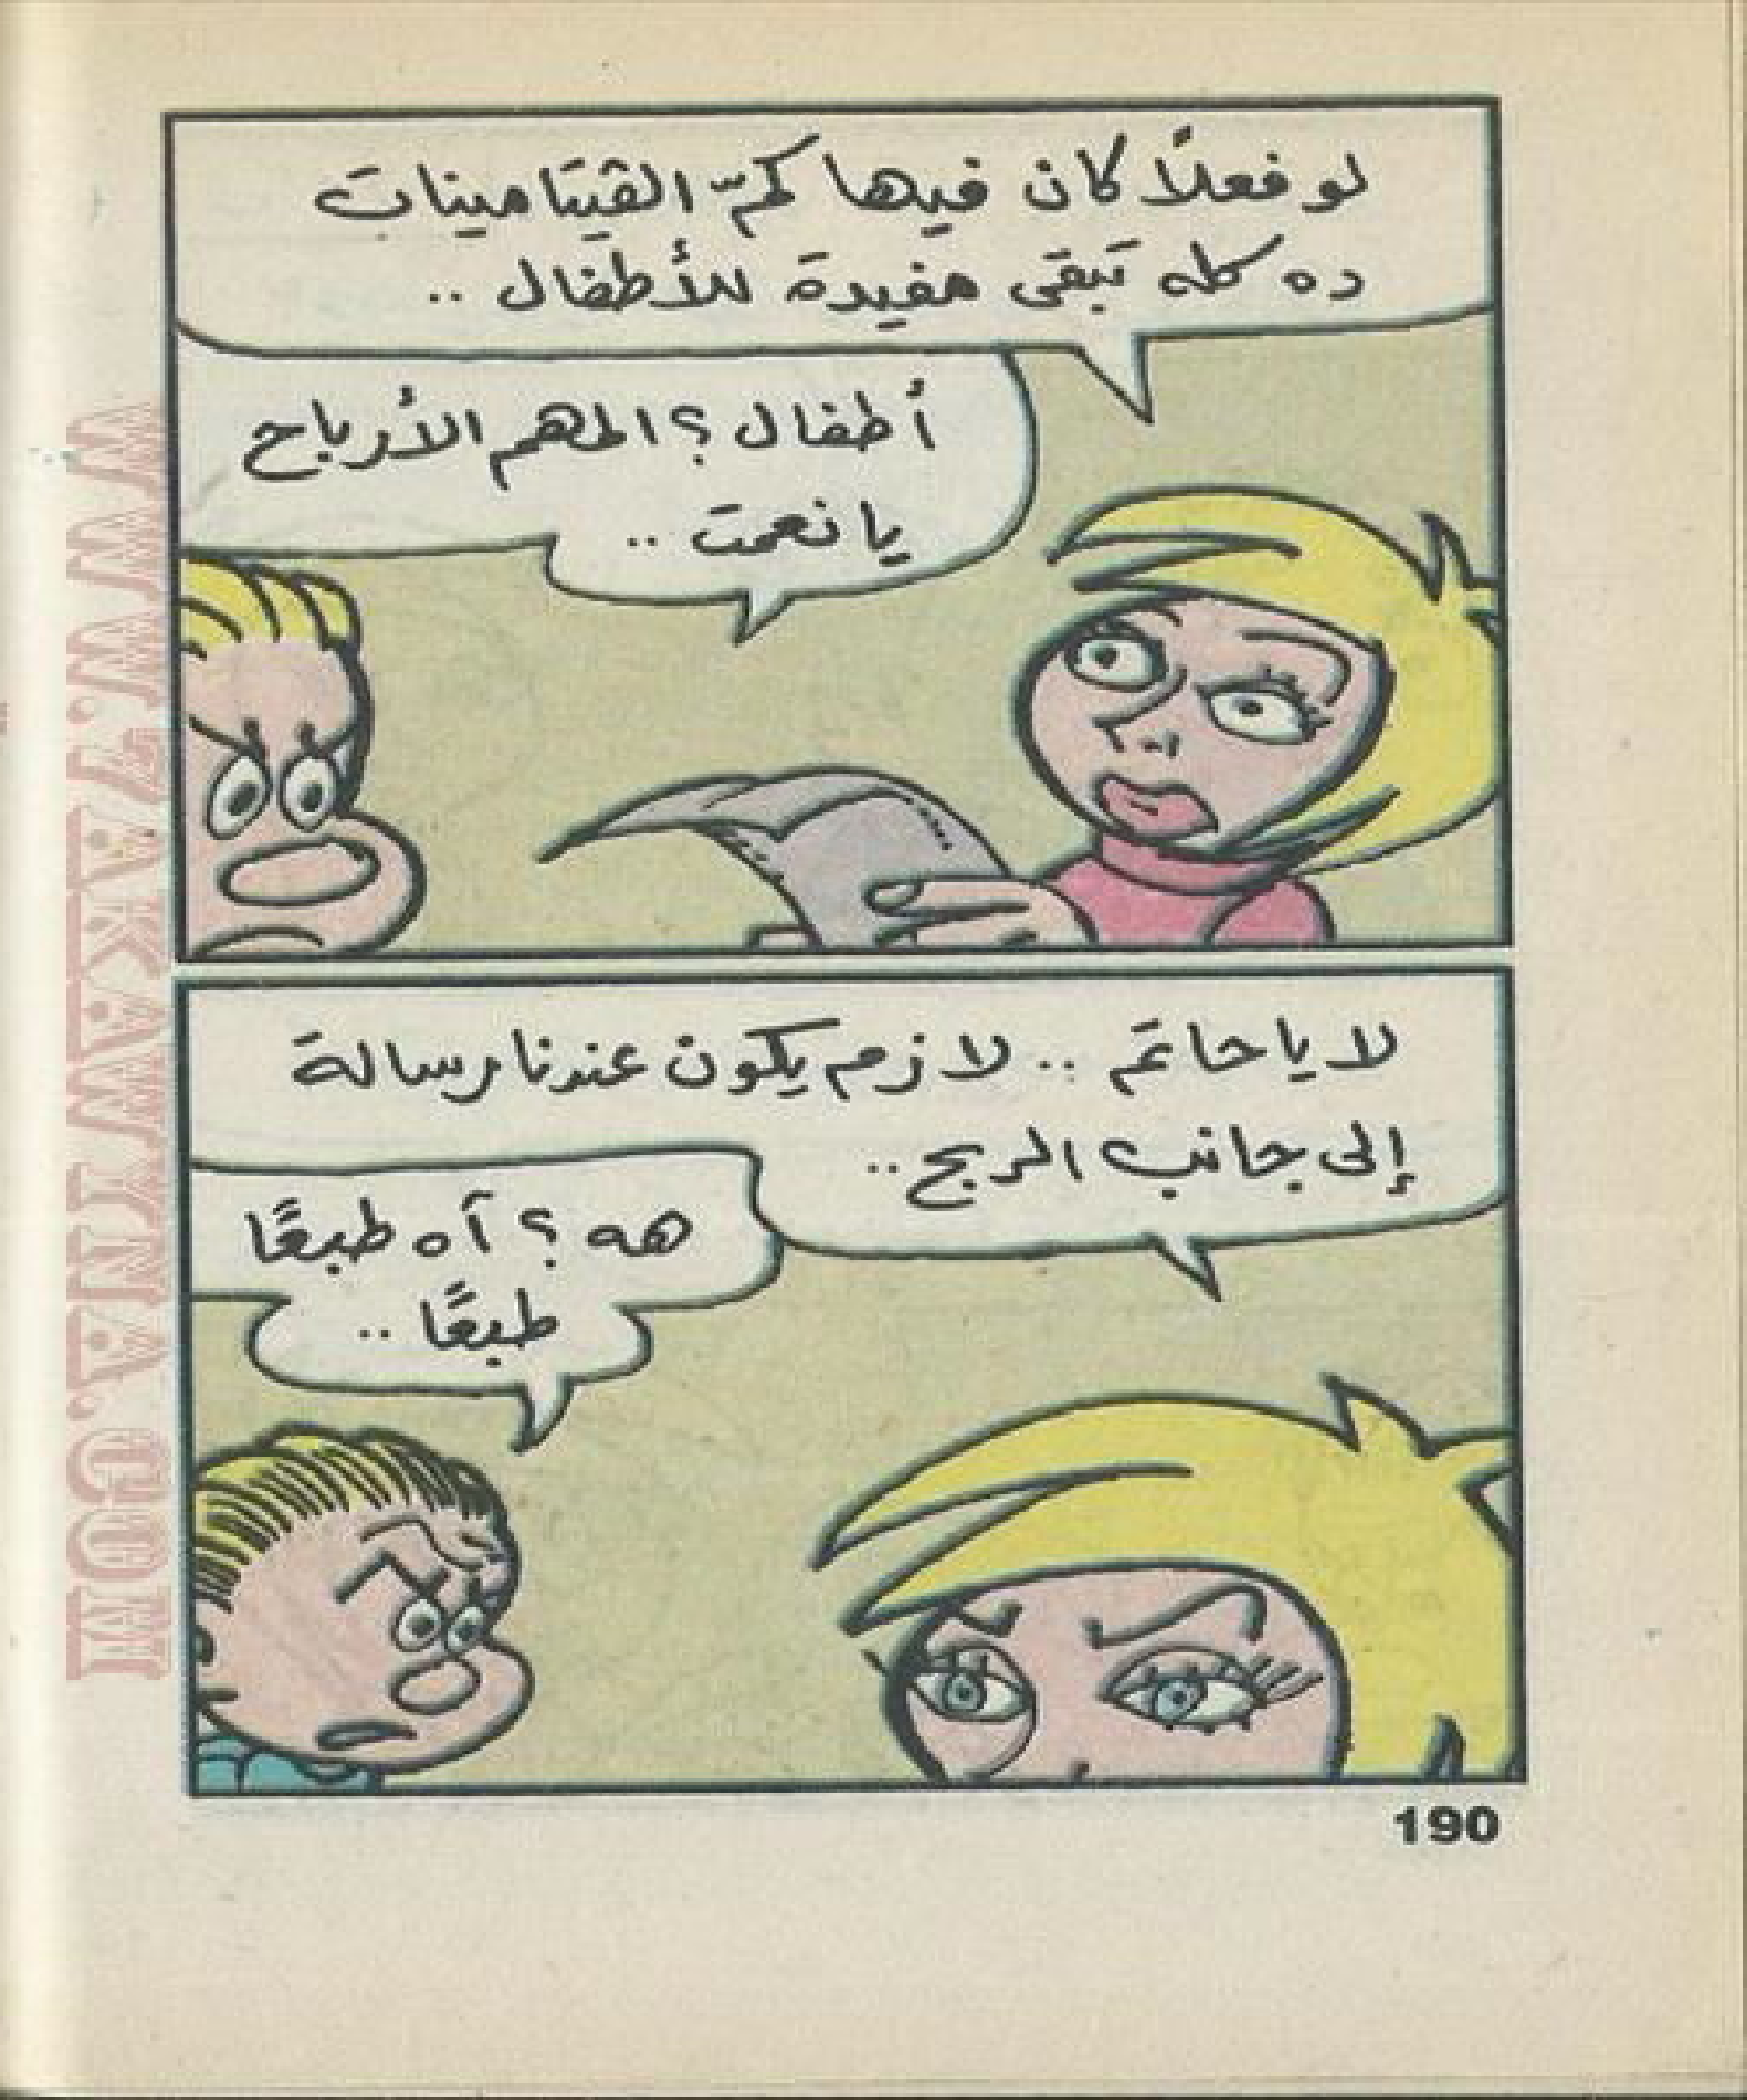 لو فعلاً كان فيها كمّ الڤيتامينات
ده كله تبقى مفيدة للأطفال ..
أطفال ؟ المهم الأرباح
يا نعمت ..
لا يا حاتم .. لازم يكون عندنا رسالة
إلى جانب الربح ..
هه ؟ آه طبعًا
طبعًا ..
190
WWW.ZAKAWTNA.COM